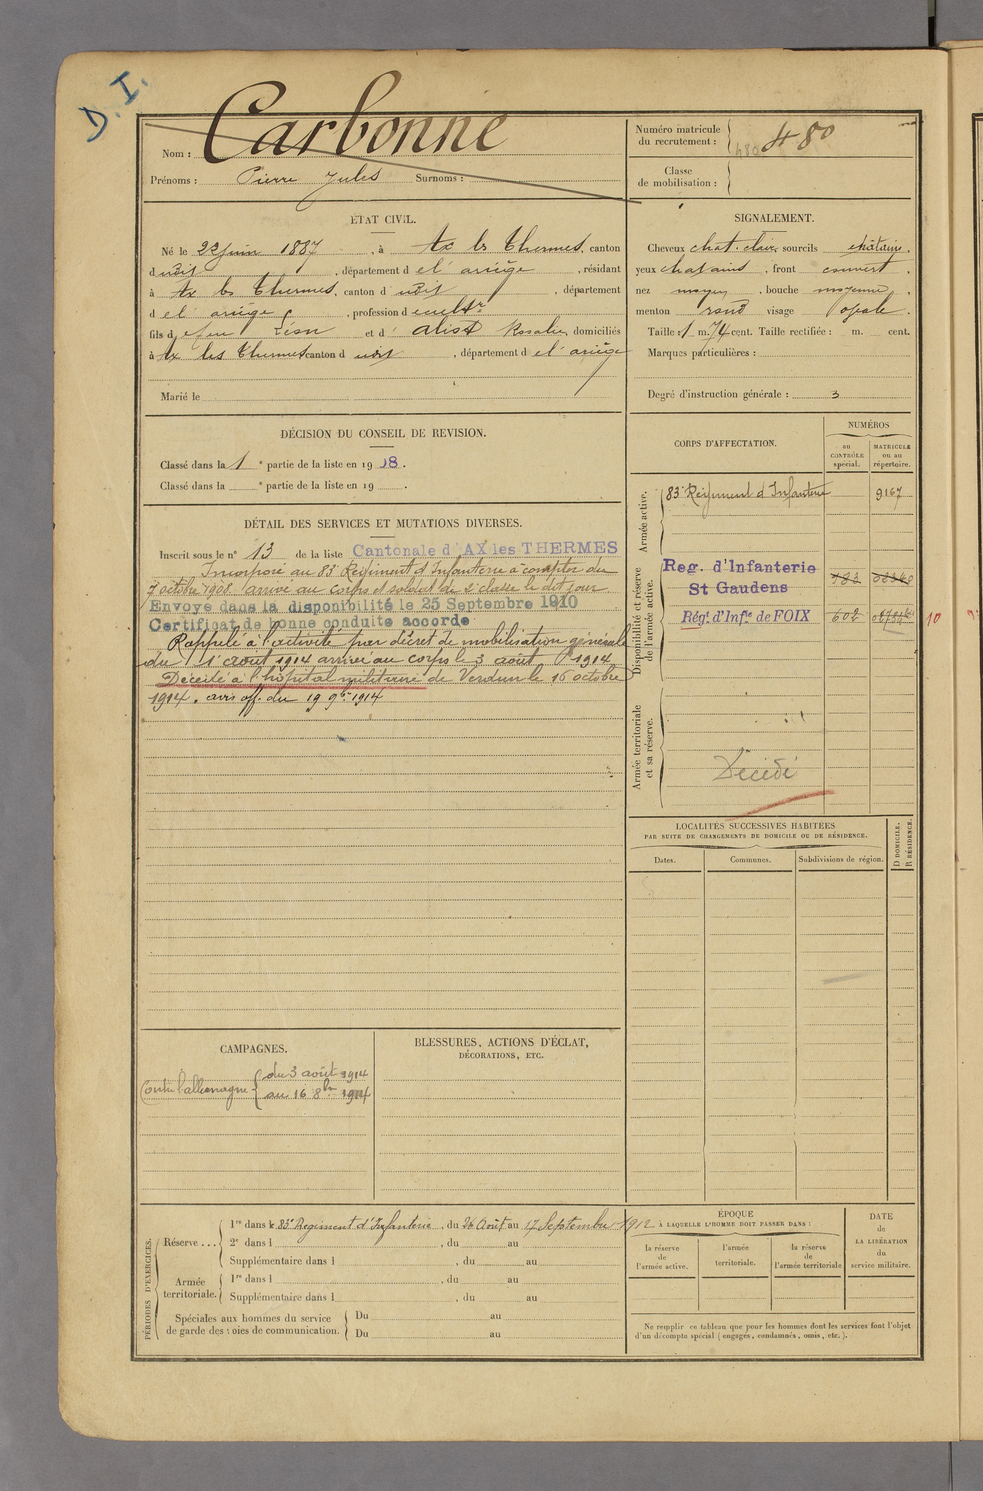 D. I.
Nom : Carbonne
Prénoms : Pierre Jules Surnoms :
Numéro matricule
du recrutement : 480 480
Classe
de mobilisation :
ÉTAT CIVIL.
Né le 22 juin 1887, à Ax les Thermes, canton
dudit, département de l'ariège, résidant
à Ax les Thermes, canton dudit, département
de l'ariège, profession de cultr
fils de feu Léon et d' Rosalie, domiciliés
à Ax les Thermes canton dudit, département de l'ariège
Marié le
SIGNALEMENT.
Cheveux chat. clair sourcils châtains.
yeux chatains, front couvert.
nez moyen, bouche moyenne.
menton rond visage ovale.
Taille : 1 m. 74 cent. Taille rectifiée : m. cent.
Marques particulières :
Degré d'instruction générale : 3
DÉCISION DU CONSEIL DE REVISION.
Classé dans la 1e partie de la liste en 1908.
Classé dans la e partie de la liste en 19 .
CORPS D'AFFECTATION.
NUMÉROS
au
CONTRÔLE
spécial.
MATRICULE
ou au
répertoire.
Armée active.
83e Régiment d'Infanterie 9167
Disponibilité et réserve
de l'armée active.
Reg. d'Infanterie
St Gaudens 783
Régt. d'Infie de FOIX 602
10
Armée territoriale
et sa réserve.
Décédé
DÉTAIL DES SERVICES ET MUTATIONS DIVERSES.
Inscrit sous le n° 13 de la liste Cantonale d'AX les THERMES
Incorporé au 83e Régiment d'Infanterie à compter du
7 octobre 1908. arrivé au corps et soldat de 2e classe le dit jour
Envoyé dans la disponibilité le 25 Septembre 1910
Certificat de bonne conduite accordé
Rappelé à l'activité par décret de mobilisation générale
du 1er août 1914 arrivé au corps le 3 août 1914
Décédé à l'hôpital militaire de Verdun le 16 octobre
1914. avis off. du 19 9bre 1914
LOCALITÉS SUCCESSIVES HABITÉES
PAR SUITE DE CHANGEMENTS DE DOMICILE OU DE RÉSIDENCE.
Dates. Communes. Subdivisions de région.
D DOMICILE.
R RÉSIDENCE.
CAMPAGNES.
Contre l'allemagne du 3 août 1914
au 16 8bre 1914
BLESSURES, ACTIONS D'ÉCLAT,
DÉCORATIONS, ETC.
PÉRIODES D'EXERCICES.
Réserve ... 1re dans le 83e Régiment d'Infanterie, du 26 Août au 17 Septembre 1912
2e dans l , du au
Supplémentaire dans l , du au
Armée
territoriale. 1re dans l , du au
Supplémentaire dans l , du au
Spéciales aux hommes du service
de garde des voies de communication. Du au
Du au
ÉPOQUE
À LAQUELLE L'HOMME DOIT PASSER DANS :
la réserve
de
l'armée active.
l'armée
territoriale.
la réserve
de
l'armée territoriale
DATE
de
LA LIBÉRATION
du
service militaire.
Ne remplir ce tableau que pour les hommes dont les services font l'objet
d'un décompte spécial (engagés, condamnés, omis, etc.).